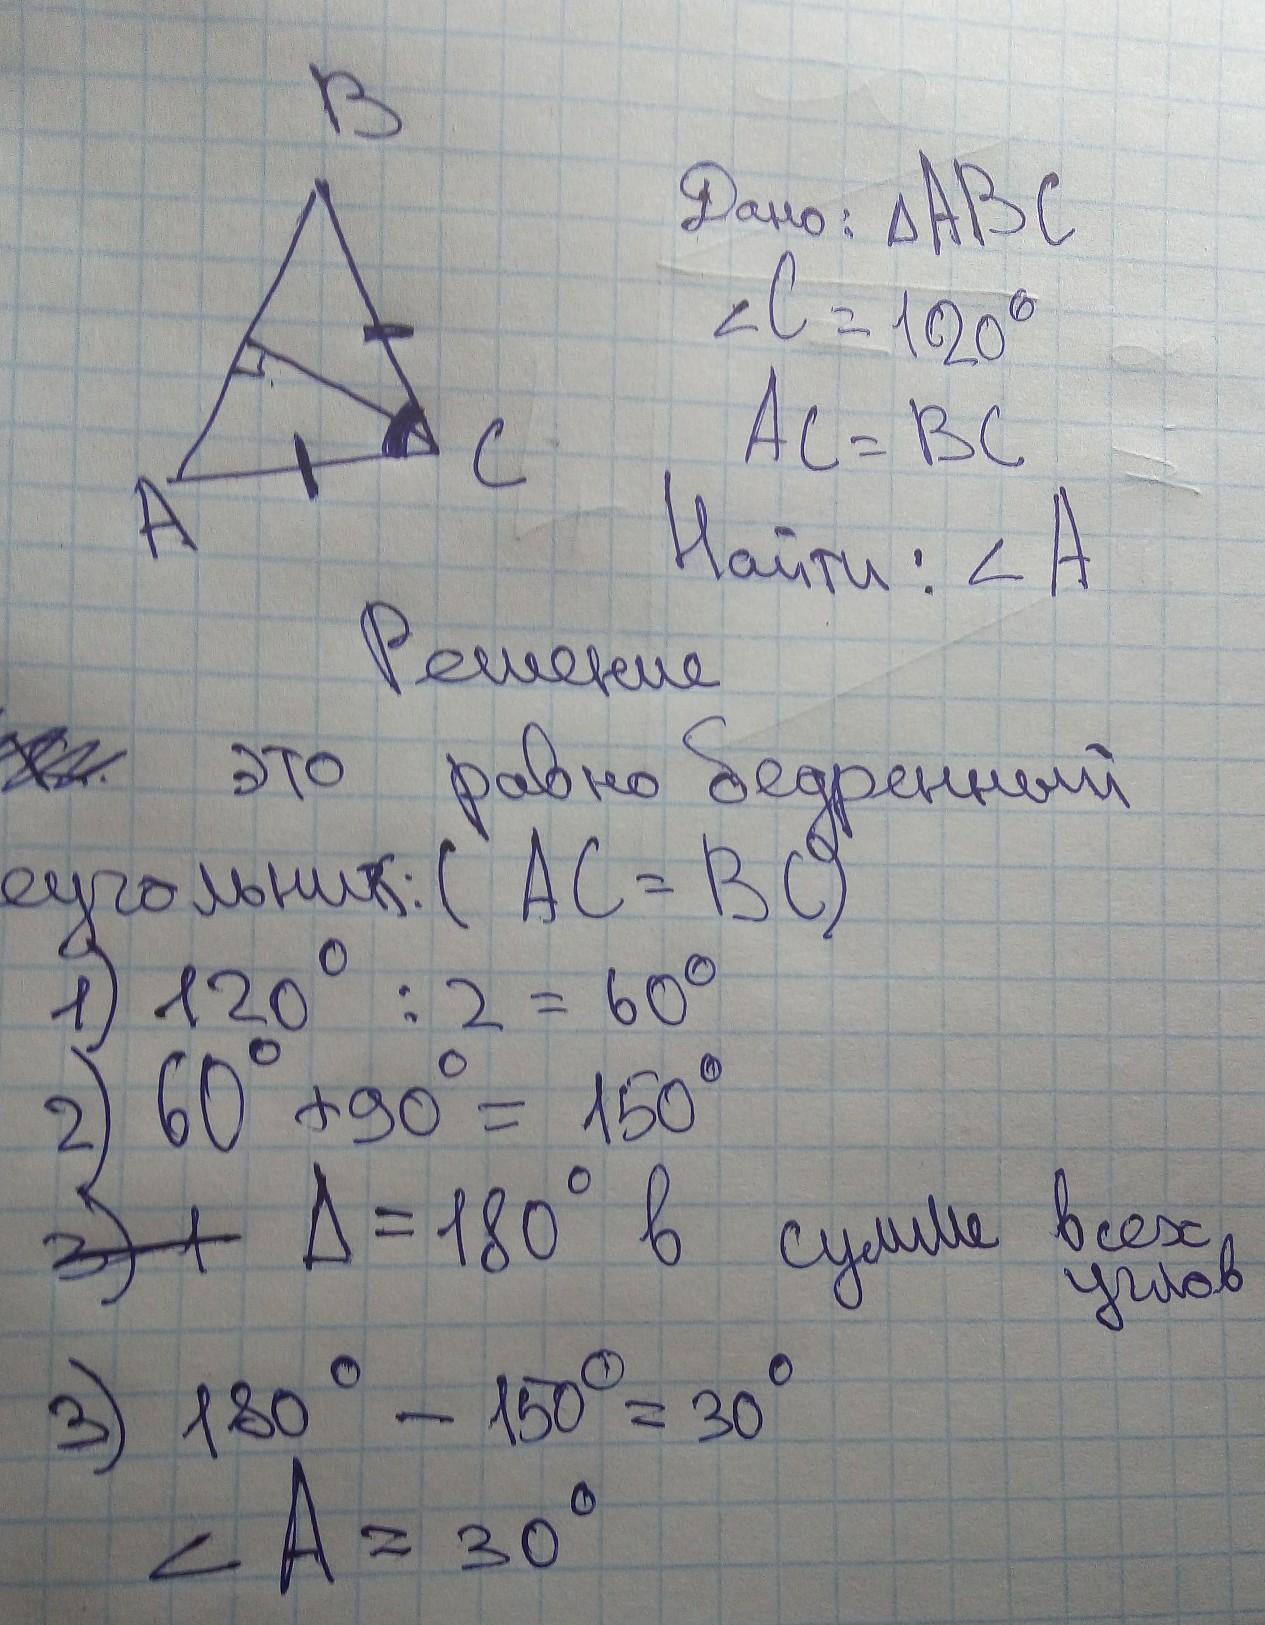 B
A
C
Дано: ΔABC
∠C = 120°
AC = BC
Найти: ∠A
Решение
это равнобедренный
еугольник: (AC = BC)
1) 120° : 2 = 60°
2) 60° + 90° = 150°
Δ = 180° в сумме всех
углов
3) 180° - 150° = 30°
∠A = 30°